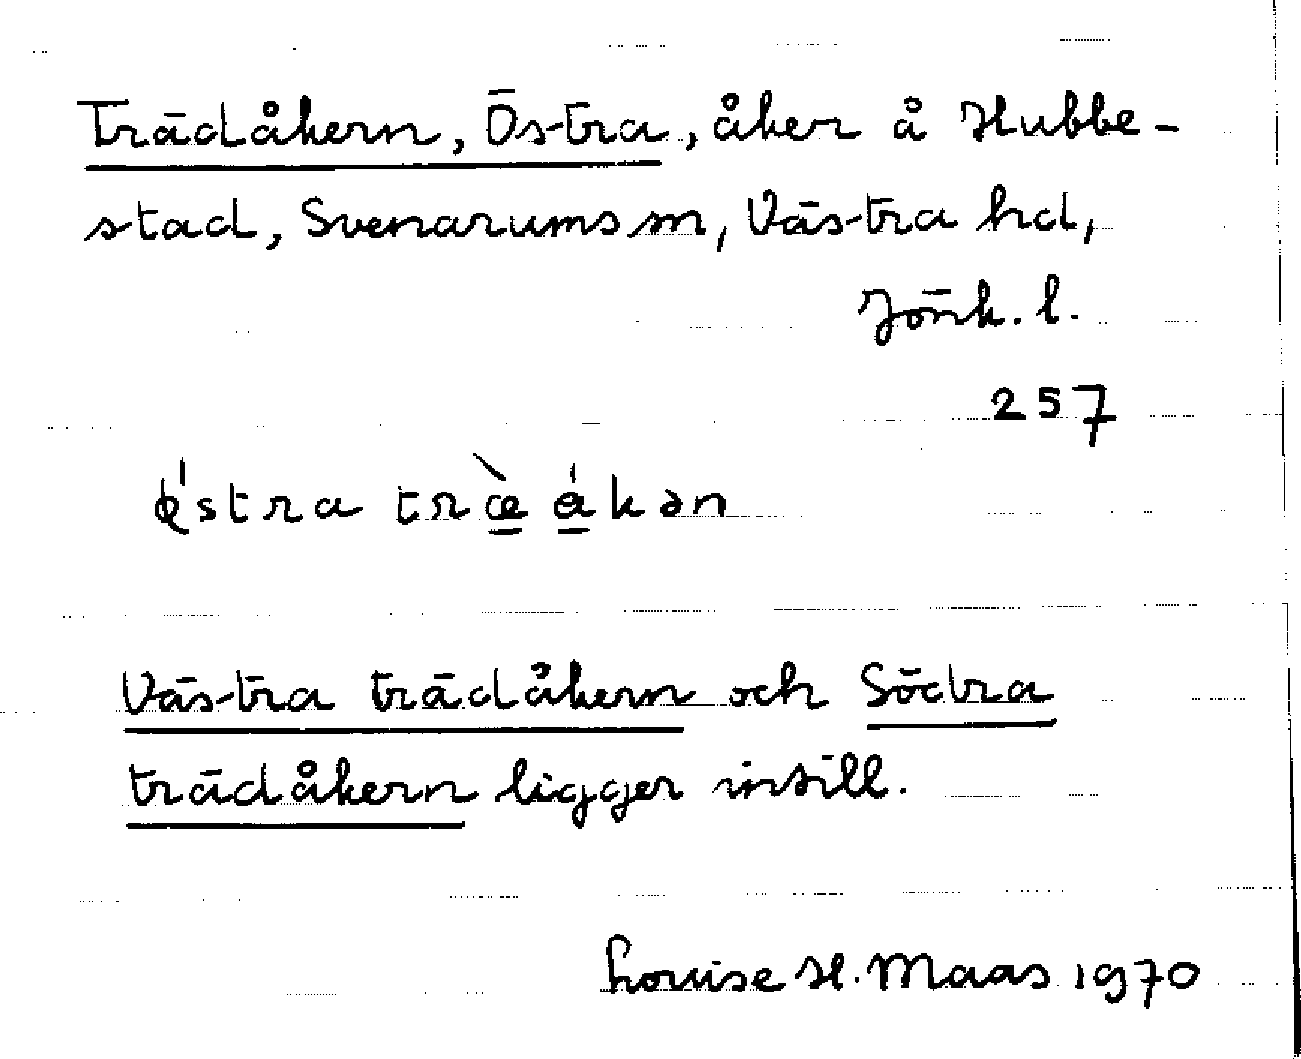 Trädåkern, Östra, åker å Hubbe-
stad, Svenarums sn, Västra hd,
Jönk. l.
257
ǿstra træ̀ ákən
Västra trädåkern och Södra
trädåkern ligger intill.
Louise H. Maas 1970